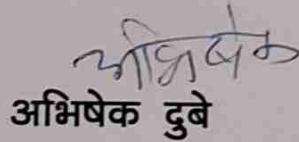 अभिषेक
अभिषेक दुबे